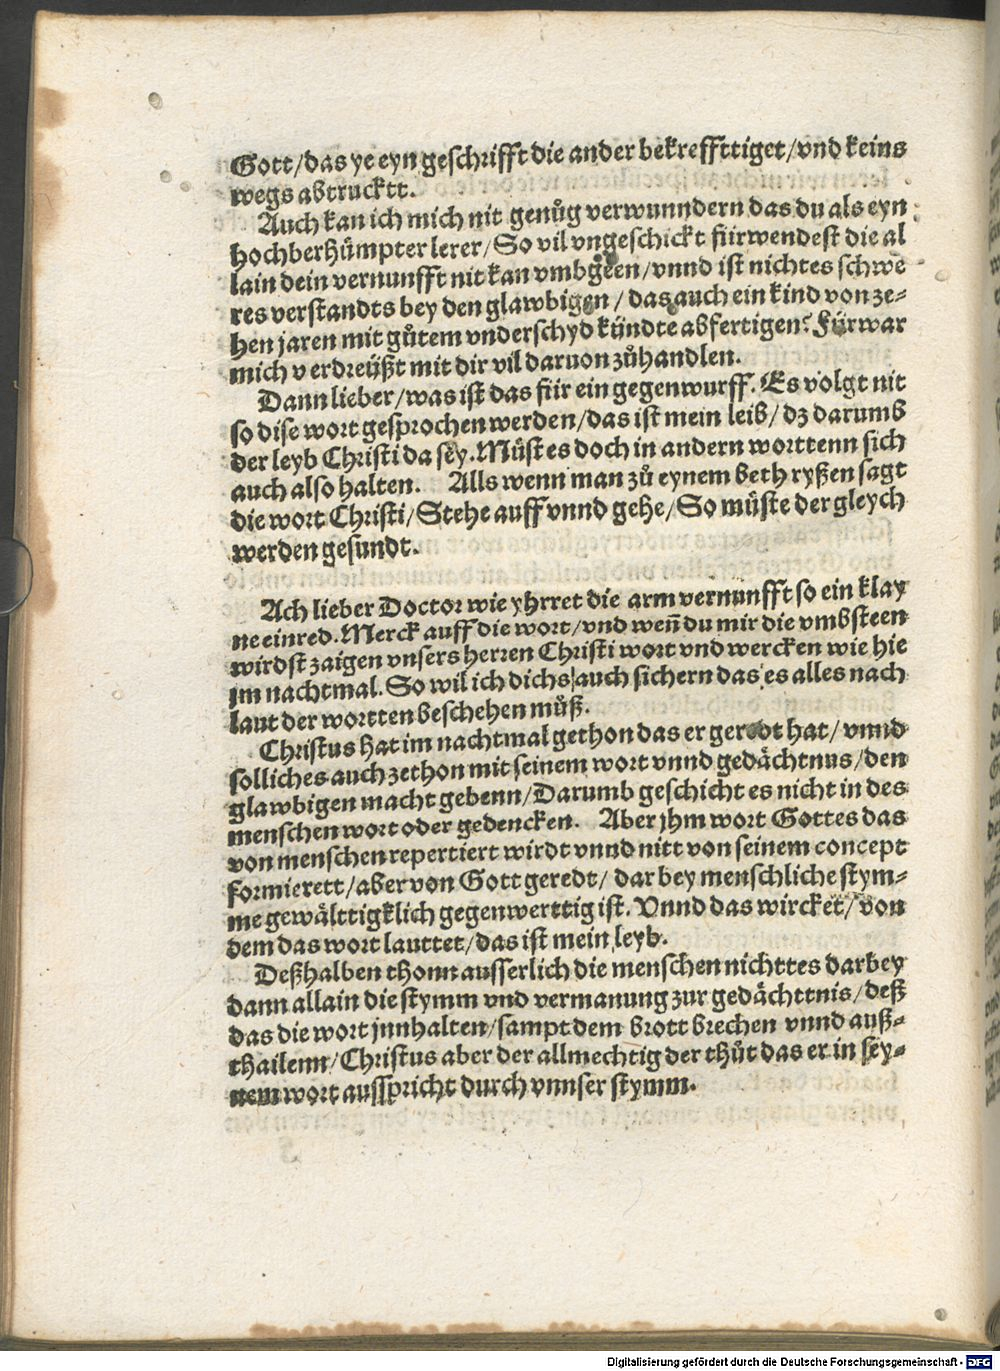 Gott/das ye eyn geschrifft die ander bekreffttiget/vnd keins
wegs abtrucktt.
Auch kan ich mich nit genůg verwunndern das du als eyn
hochberhümpter lerer/So vil vngeschickt fürwendest die al
lain dein vernunfft nit kan vmbgeen/vnnd ist nichtes schwe
res verstandts bey den glawbigen/das auch ein kind von ze-
hen jaren mit gůtem vnderschyd kündte abfertigen? Fürwar
mich verdreüßt mit dir vil daruon zůhandlen.
Dann lieber/was ist das für ein gegenwurff. Es volgt nit
so dise wort gesprochen werden/das ist mein leib/dz darumb
der leyb Christi da sey. Můst es doch in andern worttenn sich
auch also halten. Alls wenn man zů eynem beth ryßen sagt
die wort Christi/Stehe auff vnnd gehe/So můste der gleych
werden gesundt.
Ach lieber Doctor wie yhrret die arm vernunfft so ein klay
ne einred. Merck auff die wort/vnd weñ du mir die vmbsteen
wirdst zaigen vnsers herren Christi wort vnd wercken wie hie
jm nachtmal. So wil ich dichs auch sichern das es alles nach
laut der wortten beschehen můß.
Christus hat im nachtmal gethon das er geredt hat/vnnd
solliches auch zethon mit seinem wort vnnd gedächtnus/den
glawbigen macht gebenn/Darumb geschicht es nicht in des
menschen wort oder gedencken. Aber jhm wort Gottes das
von menschen repertiert wirdt vnnd nitt von seinem concept
formierett/aber von Gott geredt/dar bey menschliche stym-
me gewälttigklich gegenwerttig ist. Vnnd das wircket/von
dem das wort lauttet/das ist mein leyb.
Deßhalben thonn ausserlich die menschen nichttes darbey
dann allain die stymm vnd vermanung zur gedächttnis/deß
das die wort jnnhalten/sampt dem brott brechen vnnd auß-
thailenn/Christus aber der allmechtig der thůt das er in sey-
nem wort ausspricht durch vnnser stymm.
Digitalisierung gefördert durch die Deutsche Forschungsgemeinschaft - DFG